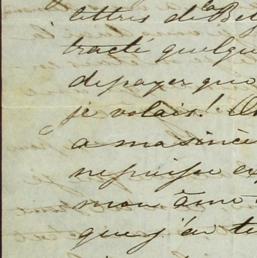 lettres de la Bel
tracté quelque
de payer que
je volais! On
a ma sincè
ne puisse ex
mon âme
que j'ai te